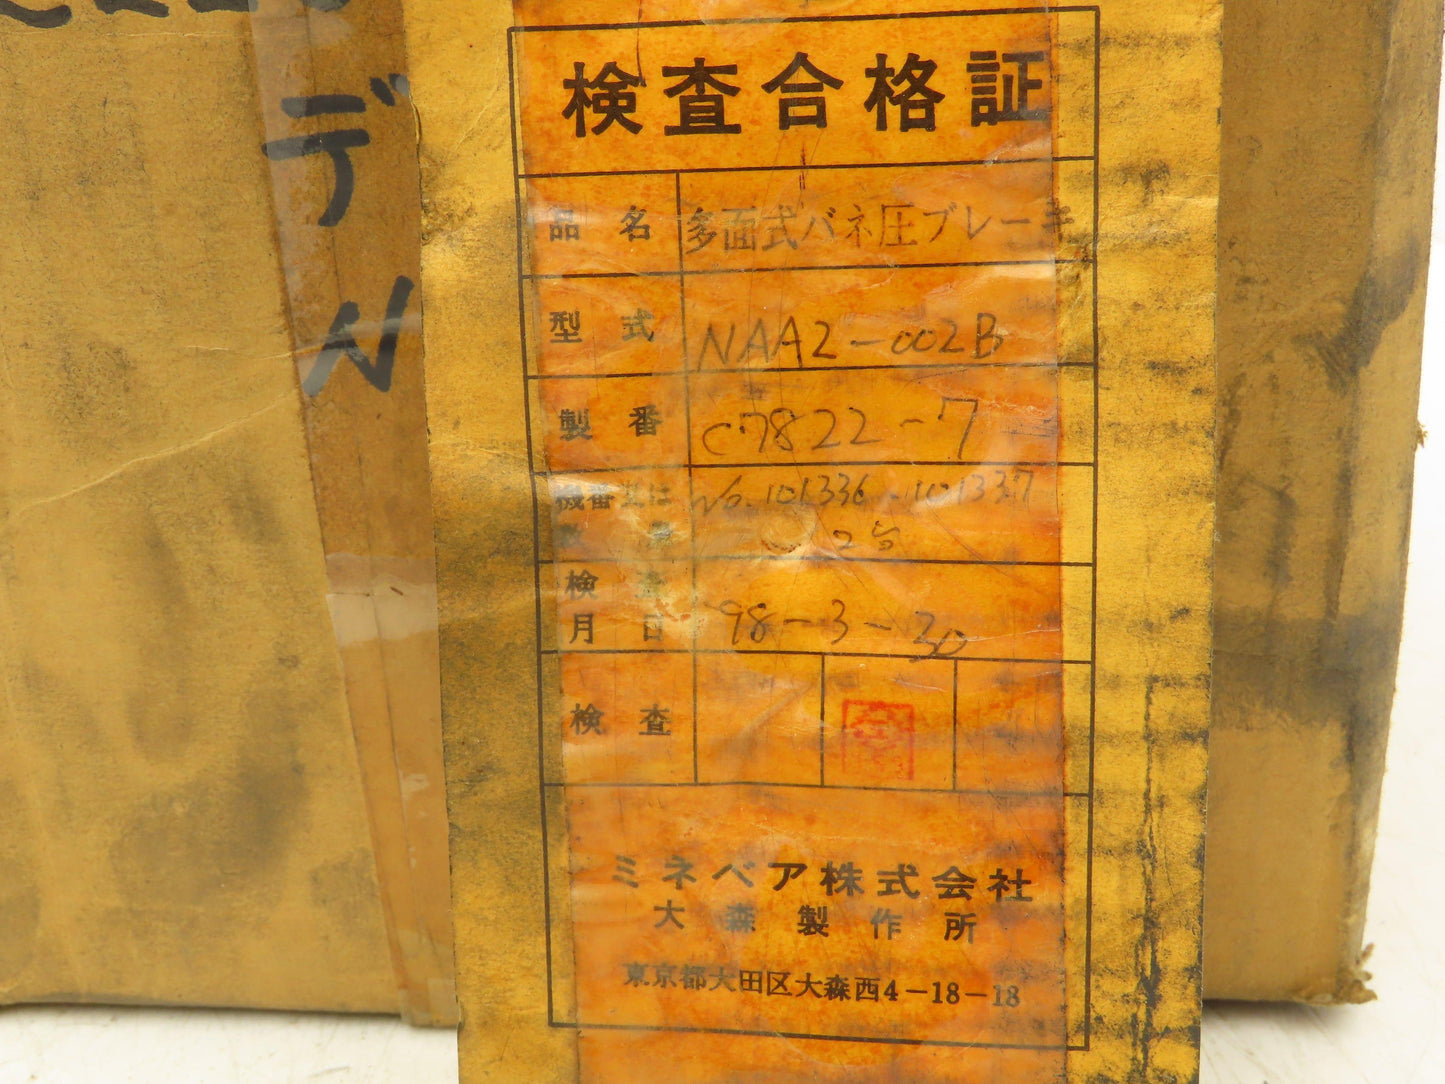 デ
N
検査合格証
品名 多面式バネ圧ブレーキ
型式 NAA2-002B
製番 C7822-7
機番又は No.101336,101337
数量 2台
検査 
月日 '98-3-30
検査
ミネベア株式会社
大森製作所
東京都大田区大森西4-18-18